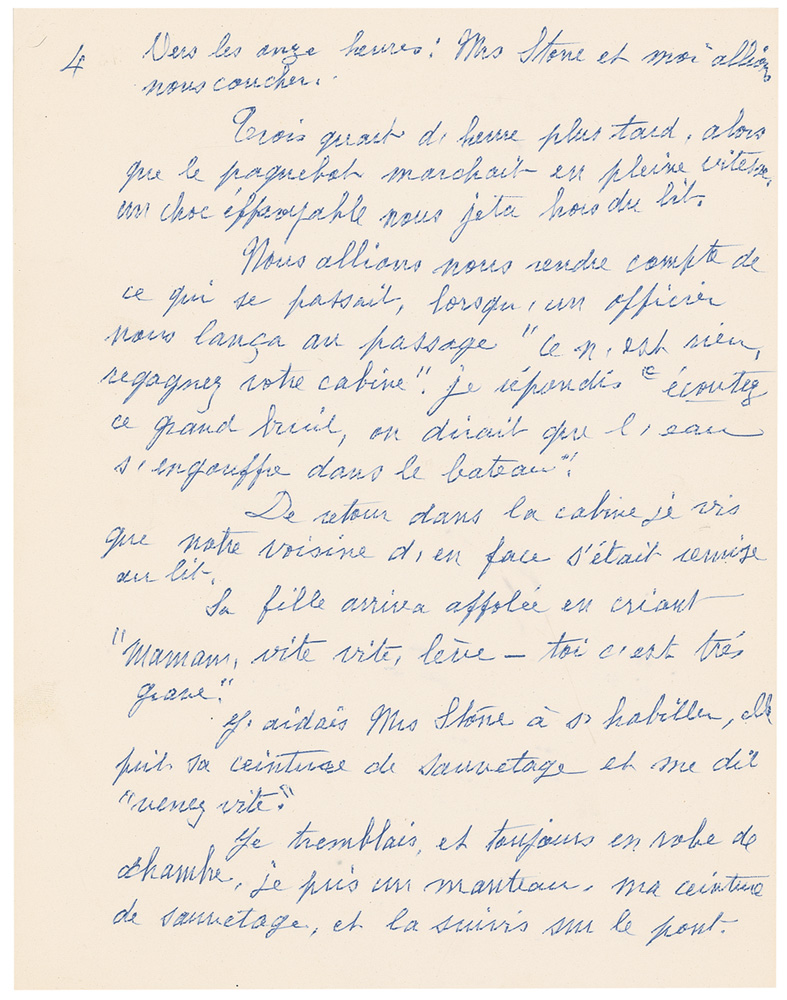 4
Vers les onze heures : Mrs Stone et moi allions
nous coucher.
Trois quart d'heure plus tard, alors
que le paquebot marchait en pleine vitesse,
un choc effroyable nous jeta hors du lit.
Nous allions nous rendre compte de
ce qui se passait, lorsqu'un officier
nous lança au passage "ce n'est rien,
regagnez votre cabine". je répondis "écoutez
ce grand bruit, on dirait que l'eau
s'engouffre dans le bateau".
De retour dans la cabine je vis
que notre voisine d'en face s'était remise
au lit.
Sa fille arriva affolée en criant
"Maman, vite vite, lève-toi c'est trés
grave".
J'aidais Mrs Stone à s'habiller, elle
prit sa ceinture de sauvetage et me dit
"venez vite".
Je tremblais, et toujours en robe de
chambre, je pris un manteau, ma ceinture
de sauvetage, et la suivis sur le pont.